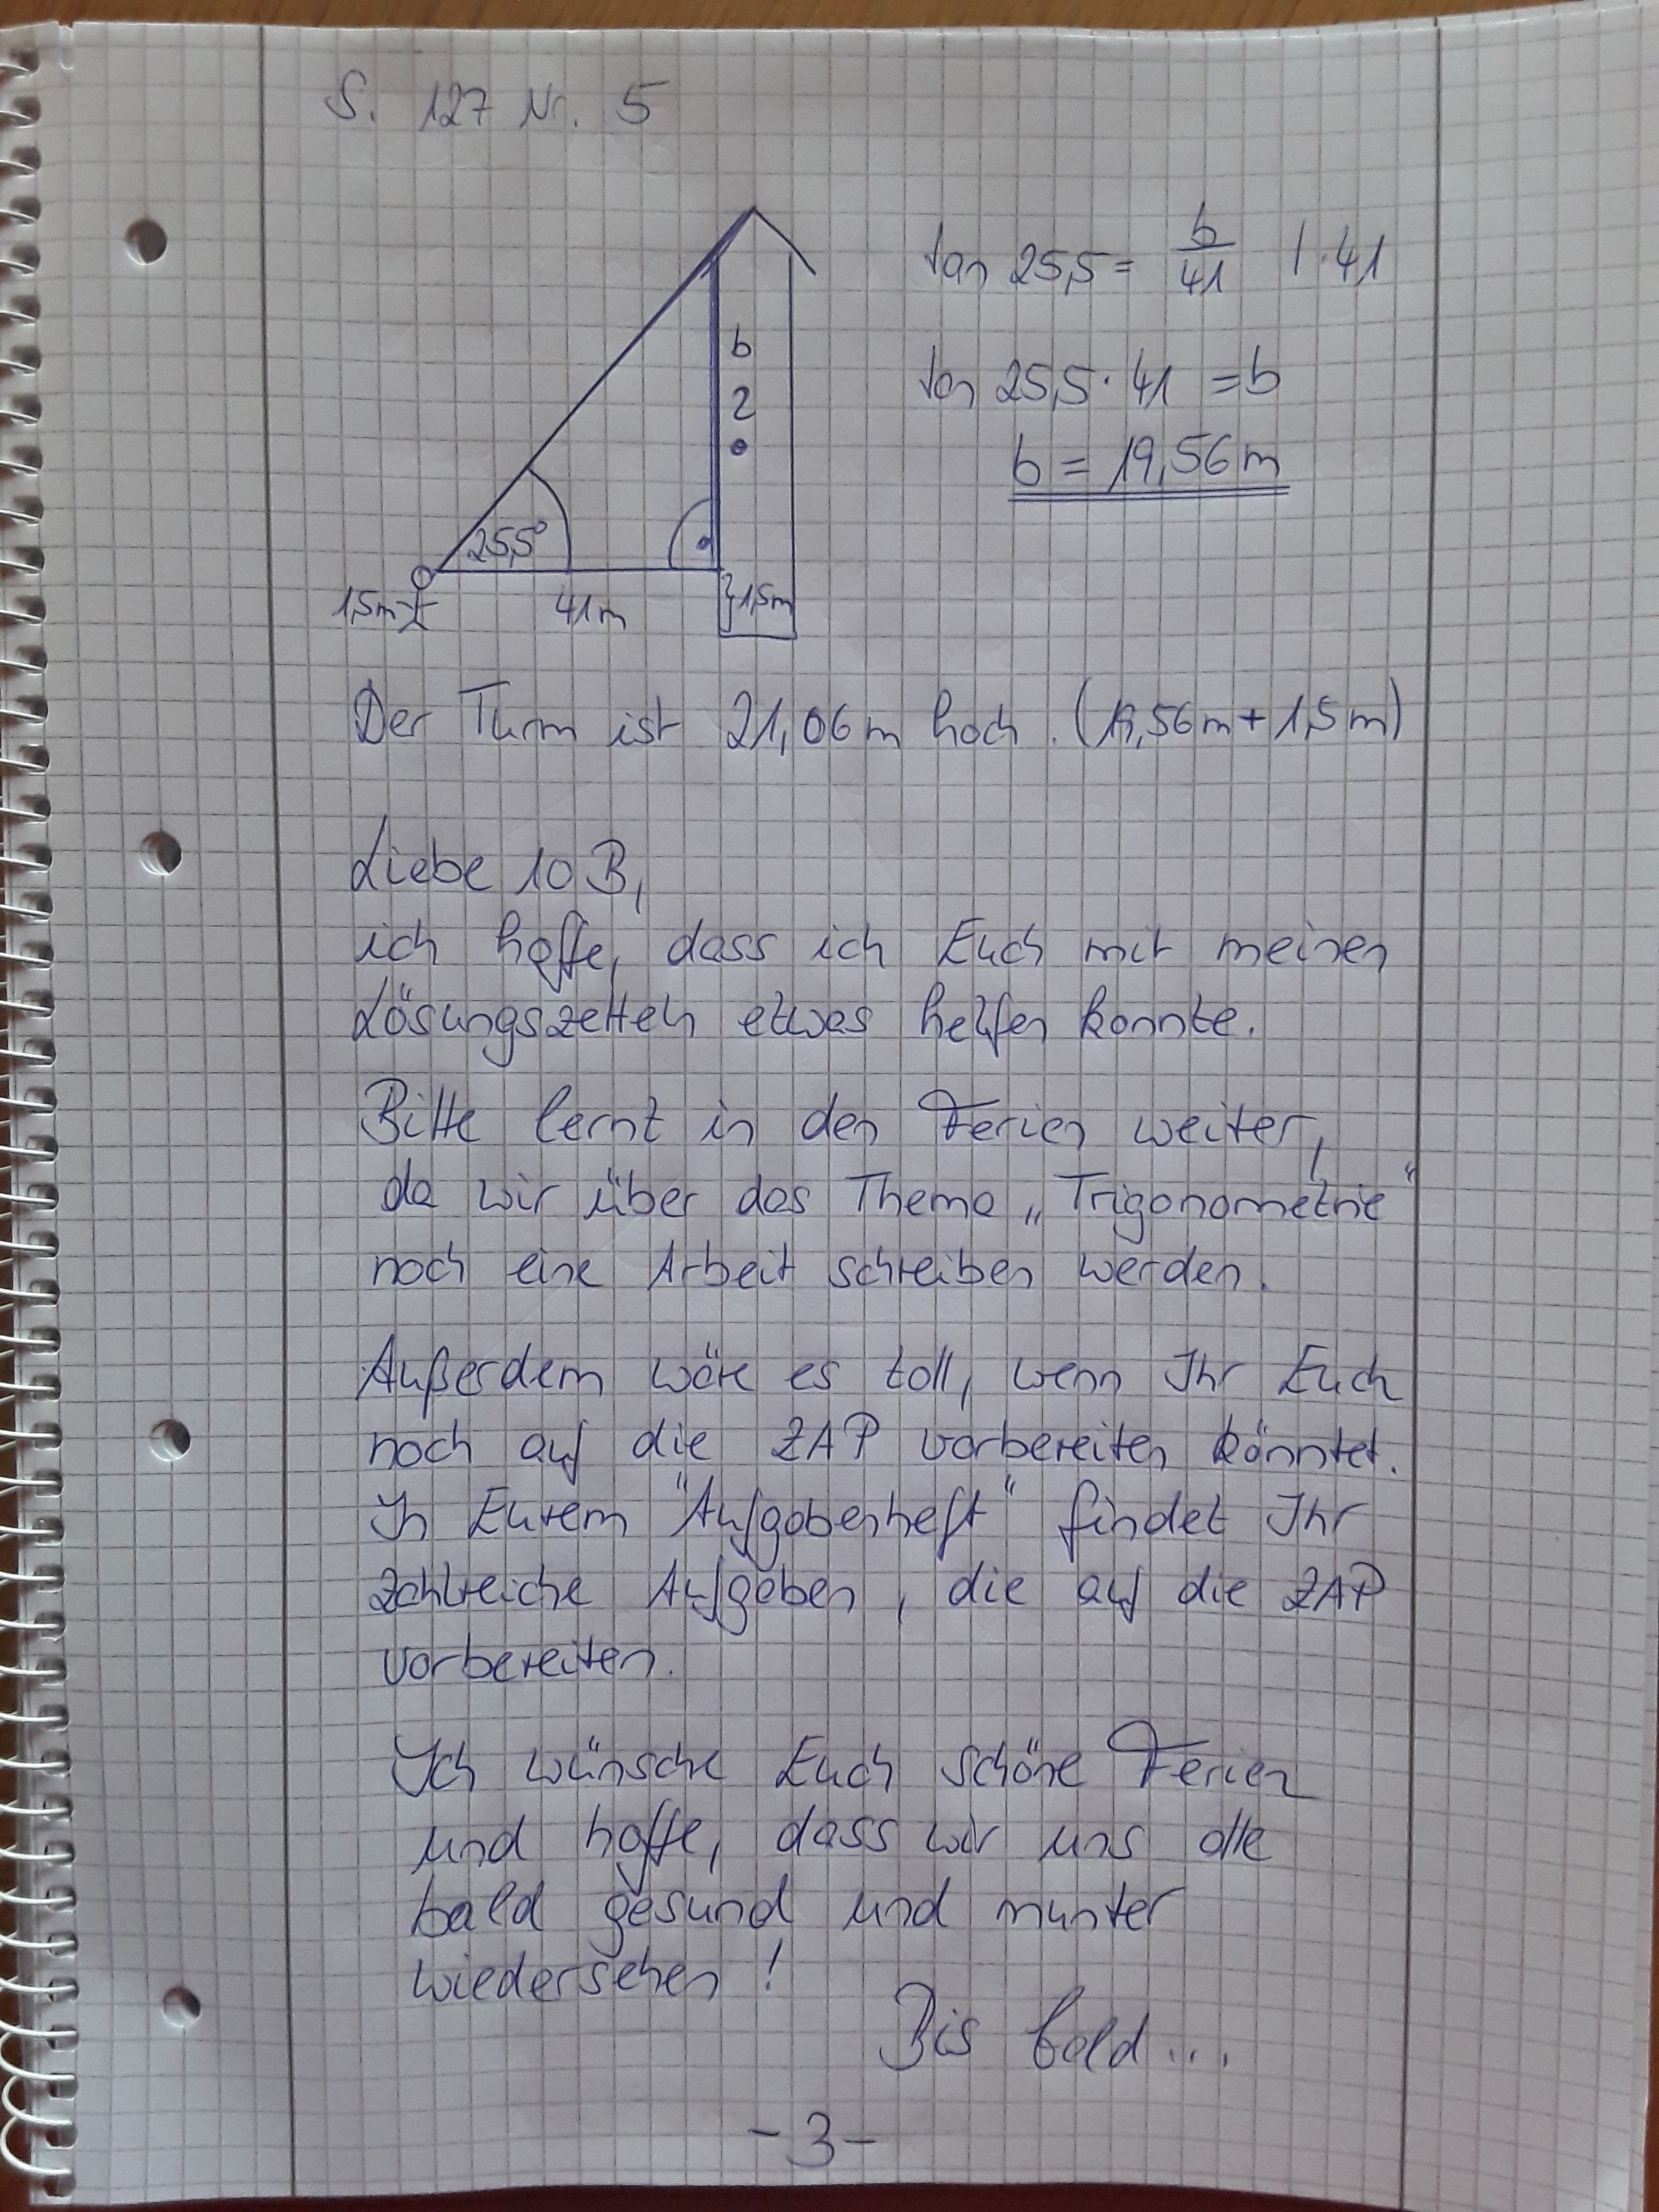 S. 127 Nr. 5
tan 25,5 = b/41 | · 41
tan 25,5 · 41 = b
b = 19,56 m
b
?
25,5°
1,5m
41m
}1,5m
Der Turm ist 21,06 m hoch. (19,56m + 1,5m)
Liebe 10 B,
ich hoffe, dass ich Euch mit meinen
Lösungszetteln etwas helfen konnte.
Bitte lernt in den Ferien weiter,
da wir über das Thema „Trigonometrie“
noch eine Arbeit schreiben werden.
Außerdem wäre es toll, wenn Ihr Euch
noch auf die ZAP vorbereiten könntet.
In Eurem "Aufgabenheft" findet Ihr
zahlreiche Aufgaben, die auf die ZAP
vorbereiten.
Ich wünsche Euch schöne Ferien
und hoffe, dass wir uns alle
bald gesund und munter
wiedersehen!
Bis bald...
- 3 -